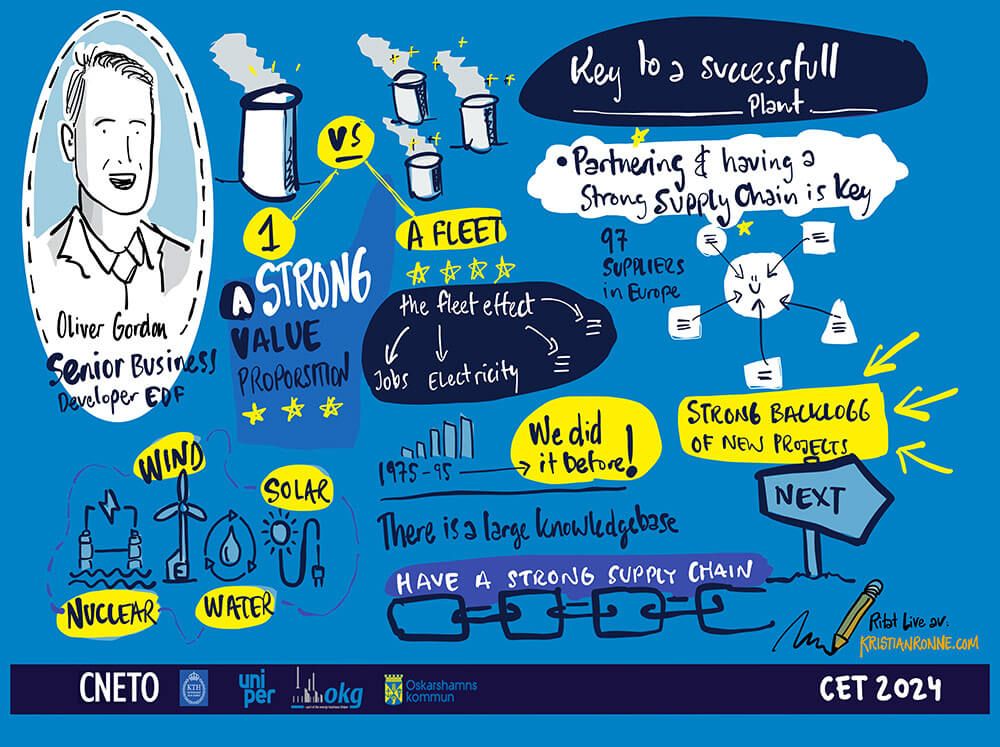 Oliver Gordon
Senior Business
Developer EDF
VS
1
A FLEET
A STRONG
VALUE
PROPORSITION
the fleet effect
Jobs Electricity
Key to a successfull
Plant
• Partnering & having a
Strong Supply Chain is key
97
SUPPLIERS
in Europe
STRONG BACKLOGG
OF NEW PROJECTS
NEXT
1975-95
We did
it before!
There is a large knowledgebase
HAVE A STRONG SUPPLY CHAIN
WIND
SOLAR
NUCLEAR
WATER
Ritat Live av:
KRISTIANRONNE.COM
CNETO
KTH
uni
per
okg
Oskarshamns
kommun
CET 2024